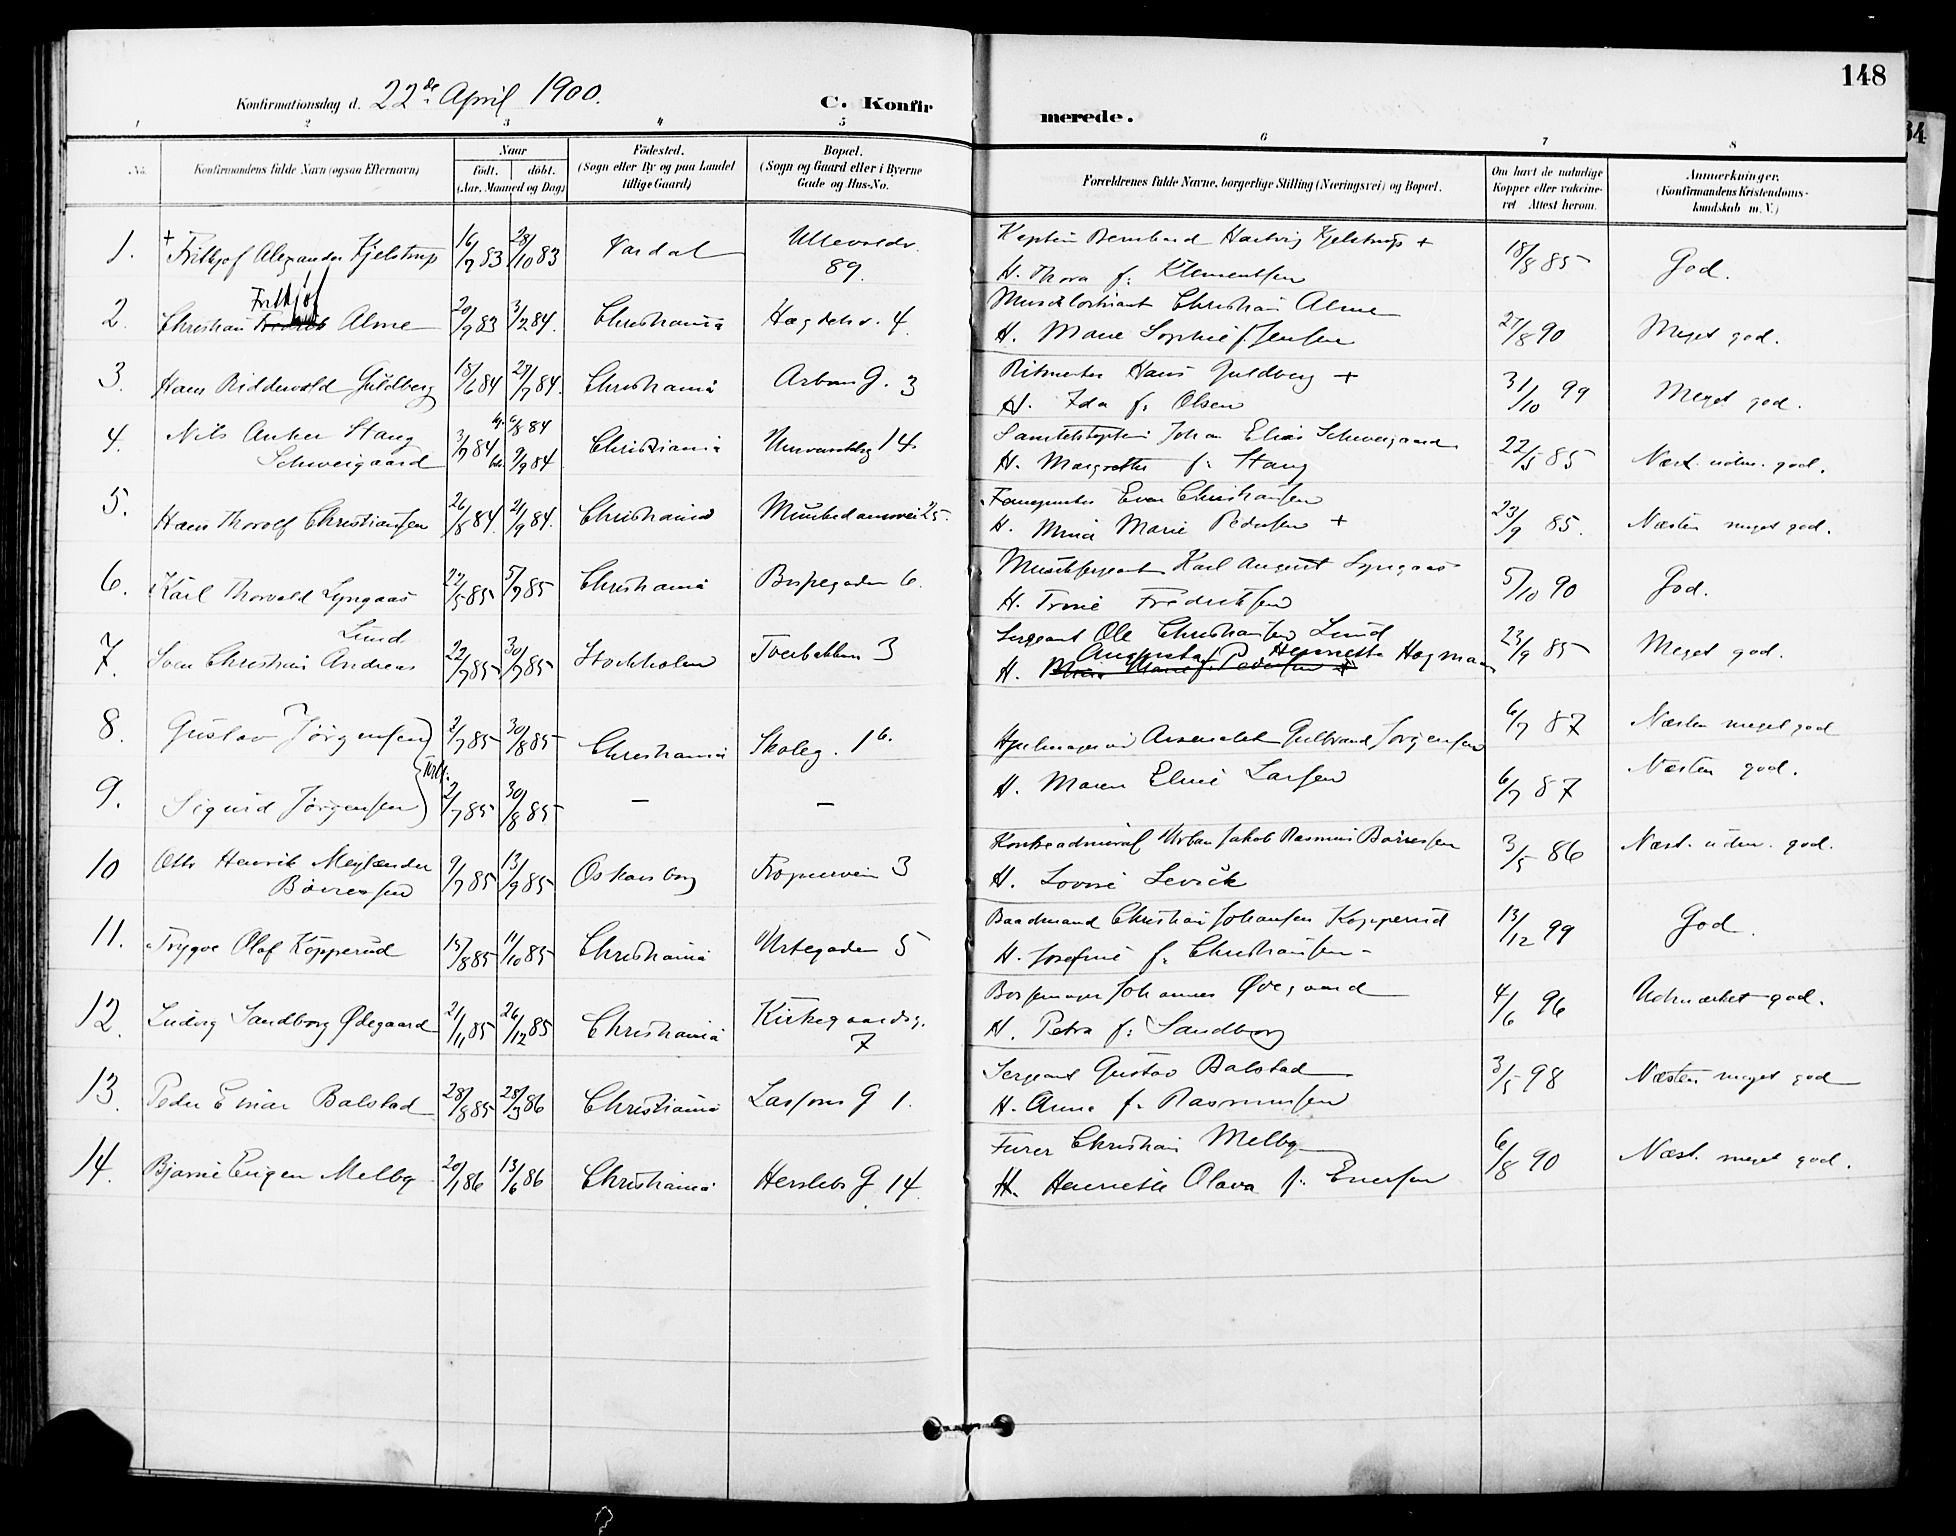 148
34
Konfirmationsdag d. 22de April 1900. C. Konfir merede.
1 2 3 4 5 6 7 8
No. Konfirmandens fulde Navn (ogsaa Efternavn) Naar født. døbt. (Aar, Maaned og Dag) Fødested. (Sogn eller By og paa Landet tillige Gaard) Bopæl. (Sogn og Gaard eller i Byerne Gade og Hus-No. Forældrenes fulde Navne, borgerlige Stilling (Næringsvei) og Bopæl. Om havt de naturlige Kopper eller vaccineret Attest herom. Anmerkninger. (Konfirmandens Kristendomskundskab m. V.)
1. + Frithjof Alexander Kjelstrup 16/7 83 28/10 83 Vardal Ullevoldsv. 89. Kaptein Bernhard Hartvig Kjelstrup + 18/8 85 God.
H. Thora f. Klementsen
Frithjof
2. Christian Alme 20/9 83 3/2 84. Christiania Hægdehv. 4. Christian Alme 27/8 90 Meget god.
H. Marie Sophie f. Jensen
3. Hans Ridderwold Guldberg 18/6 84 27/7 84. Christiania Arbins G. 3 Ritmester Hans Guldberg + 31/10 99 Meget god.
H. Ida f. Olsen
4. Nils Anker Stang Schweigaard 3/7 84 6/8 84 9/9 84 Christiania 14 Johan Elias Schweigaard 22/5 85 Næst. udm. god.
H. Margrethe f. Stang
5. Hans Thorolf Christiansen 26/8 84. 21/9 84. Christiania Munkedamsvei 25. Even Christiansen 23/9 85. Næsten meget god.
H. Mina Marie Pedersen +
6. Karl Thorvald Lyngaas 22/5 85 5/7 85 Christiania Bispegaden 6. Musiksergeant Karl August Lyngaas 5/10 90 God.
H. Trine Fredriksen
7. Sven Christian Andreas Lund 22/7 85 30/7 85 Stockholm Tverbakken 3 Sergeant Ole Christiansen Lund 23/9 85 Meget god.
Augusta Henrietta Hagman
H. Mina Marie f. Pedersen +
8. Gustav Jörgensen 2/7 85 30/8 85 Christiania Skoleg. 1b. Hjulmager ved Arsenalet Gulbrand Jörgensen 6/7 87 Næsten meget god
Tvill.
9. Sigurd Jörgensen 2/7 85 30/8 85 — — H. Maren Eline Larsen 6/7 87 Næsten god.
10 Otto Henrik Meylænder Börresen 9/7 85 13/9 85 Oskarsborg Frognervein 3 Kontreadmiral Urban Jakob Rasmus Börresen 3/5 86 Næst. udm. god.
H. Lovise Levick
11. Trygve Olaf Kopperud 15/8 85 11/10 85 Christiania Urtegaden 5 Baadmand Christian Johansen Kopperud 13/12 99 God.
H. Josefine f. Christiansen
12. Ludvig Sandborg Ødegaard 21/11 85 26/12 85 Christiania Kirkegaardsg. 7 Börsemager Johannes Ødegaard 4/6 96 Udmærket god.
H. Petra f. Sandborg
13. Peder Einar Balstad 28/8 85 28/3 86 Christiania Lassons G 1. Sergeant Gustav Balstad 3/5 98 Næsten meget god
H. Anna f. Rasmussen
14. Bjarne Eugen Melby 20/1 86 13/6 86 Christiania Herslebs G. 14. Furer Christian Melby 6/8 90 Næst. meget god.
H. Henriette Olava f. Enersen